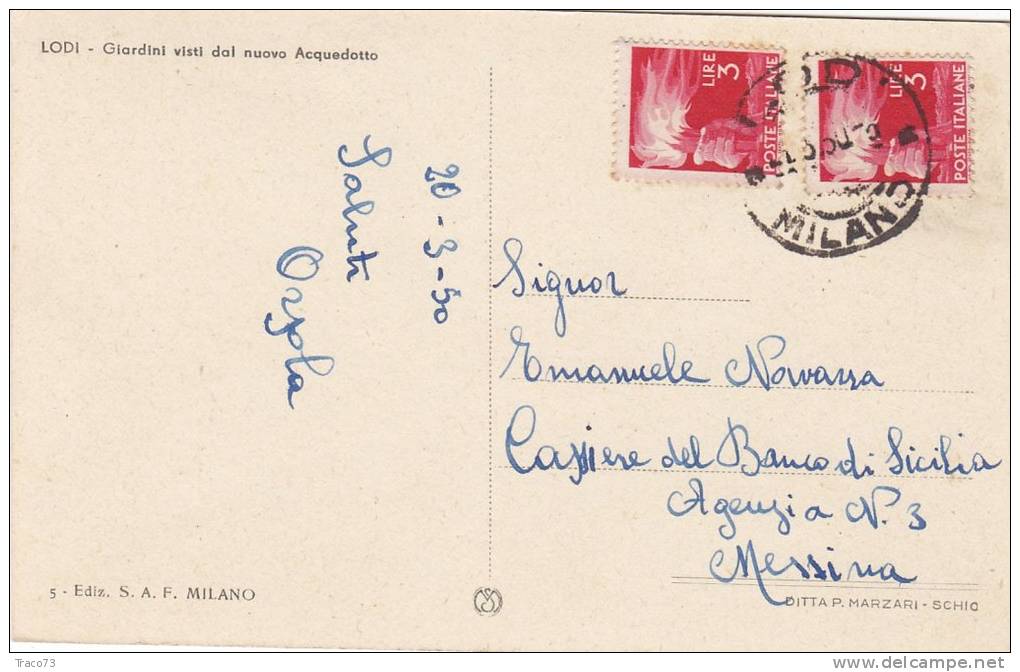 LODI - Giardini visti dal nuovo Acquedotto
LIRE 3
POSTE ITALIANE
LIRE 3
POSTE ITALIANE
MILANO
20-3-50
Saluti
Signor
Emanuele Navarra
Cassiere del Banco di Sicilia
Agenzia N. 3
Messina
5 - Ediz. S. A. F. MILANO
DITTA P. MARZARI - SCHIO
Traco73
www.delcampe.net